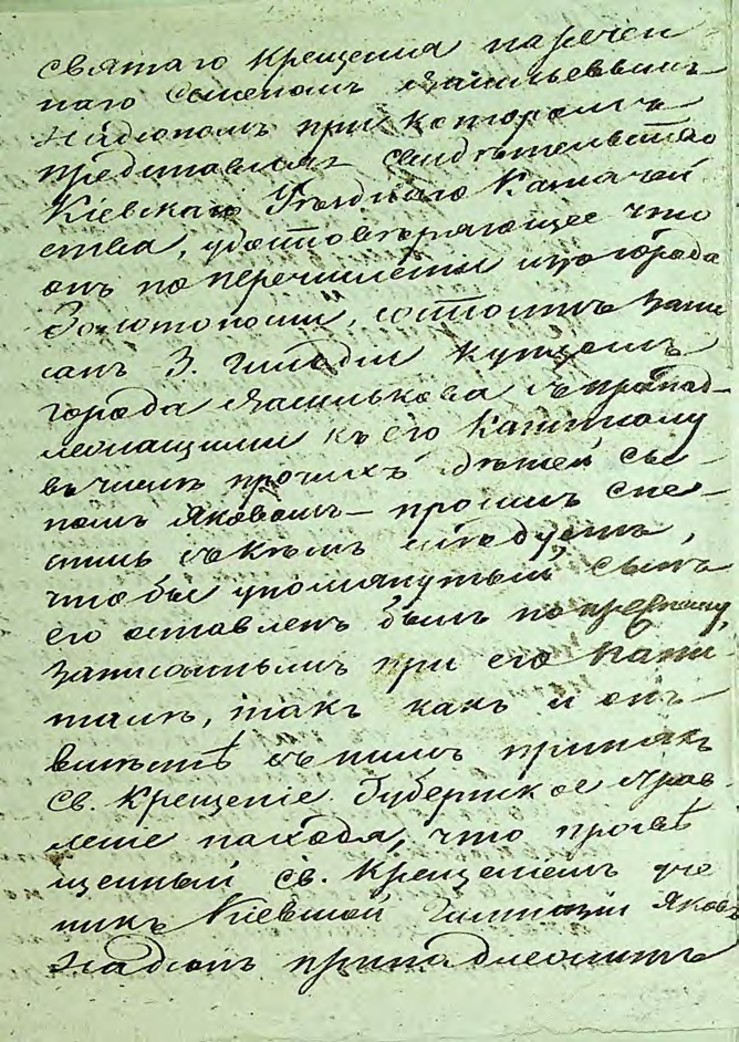 святаго крещенія наречен
наго Семеномъ Васильевымъ
Надсономъ при которомъ
представляя свидѣтельство
Кіевскаго Уѣзднаго Казначей
ства, удостовѣряющее что
онъ по перечисленіи изъ города
Золотоноши, состоитъ запи
санъ 3. гильдіи купцомъ
города Василькова съ принад-
лежащими къ его капиталу
въ числѣ прочихъ дѣтей сы-
номъ Яковомъ – просилъ сне-
стись съ кѣмъ слѣдуетъ,
чтобы упомянутый сынъ
его оставленъ былъ по прежнему
записаннымъ при его капи-
талѣ, такъ какъ и онъ
вмѣстѣ съ нимъ принялъ
Св. Крещеніе. Губернское Прав-
леніе находя, что просвѣ
щенный св. Крещеніемъ уче
никъ Кіевской Гимназіи Яковъ
Надсонъ принадлежитъ